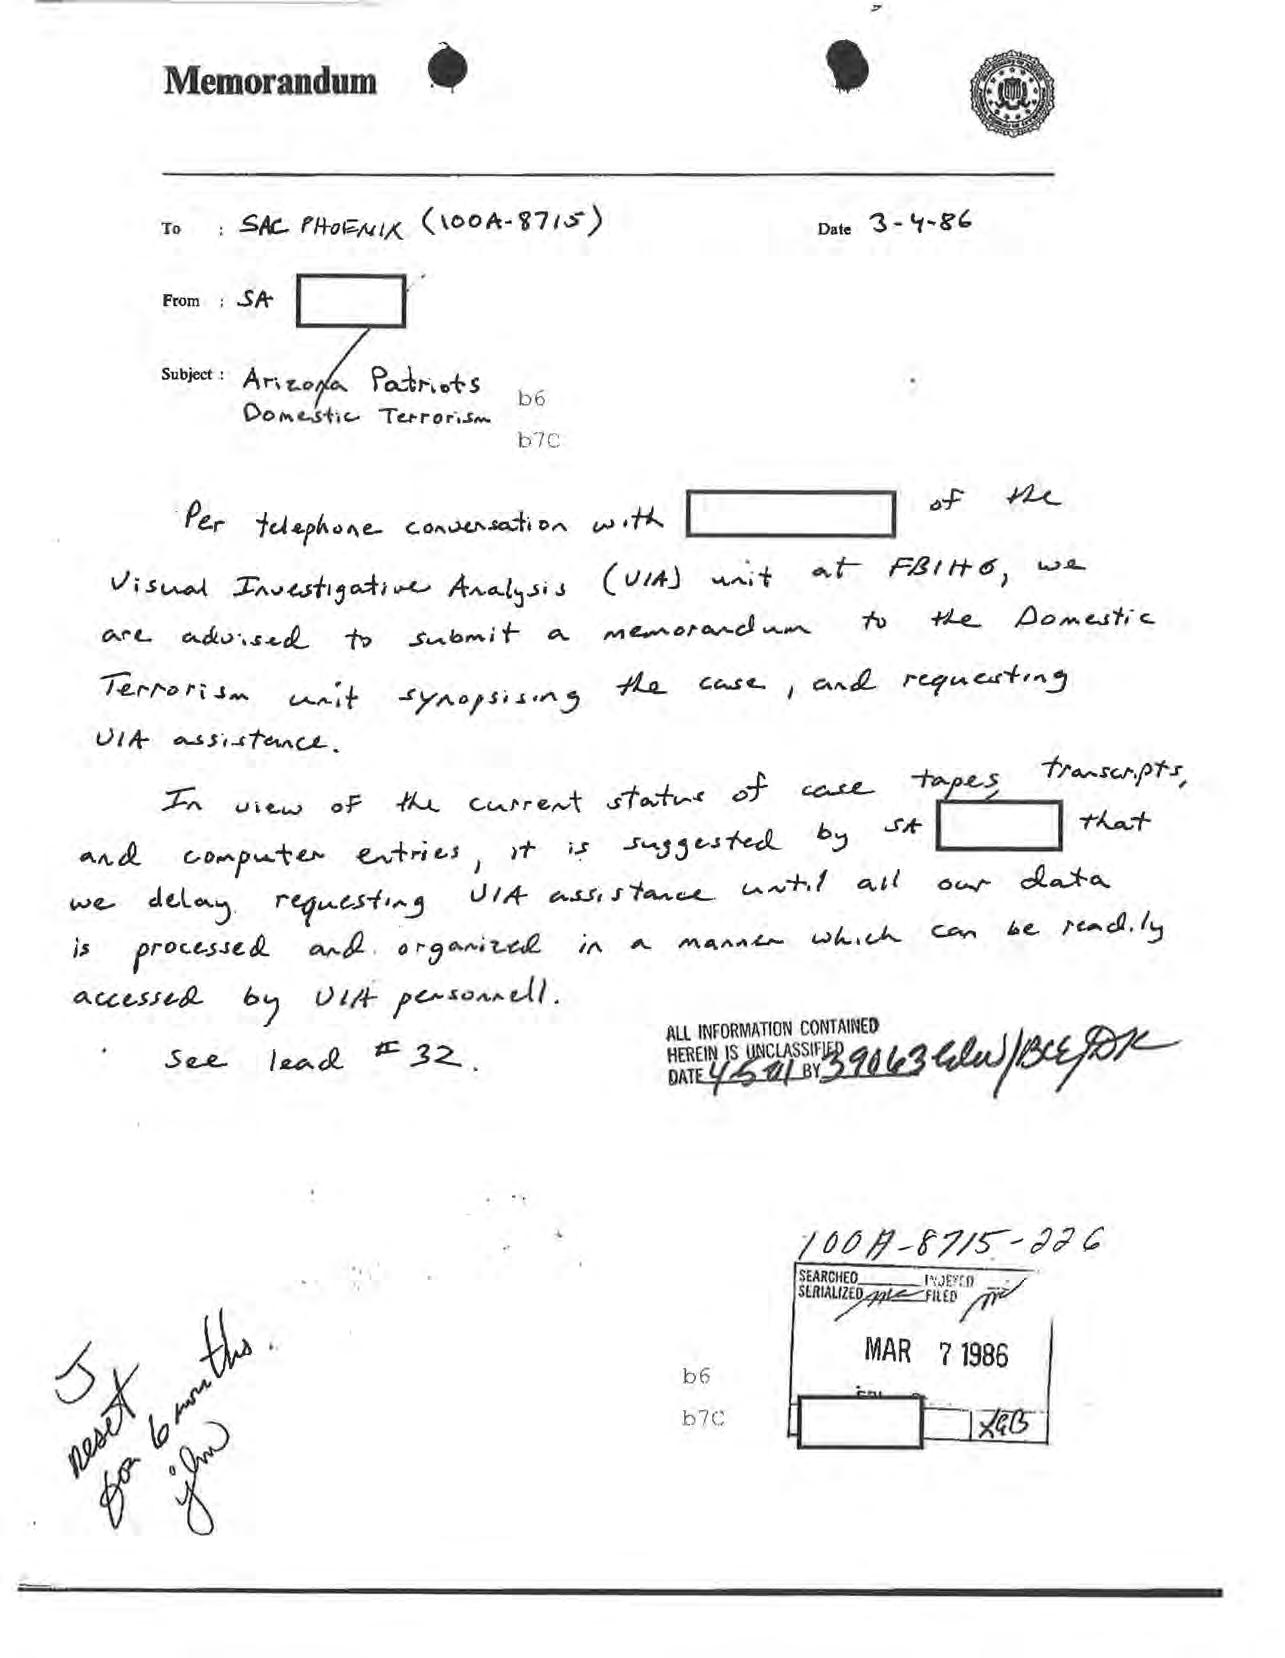 Memorandum
To : SAC PHOENIX (100A-8715) Date 3-4-86
From : SA
Subject : Arizona Patriots
Domestic Terrorism
b6
b7C
Per telephone conversation with of the
Visual Investigative Analysis (VIA) unit at FBIHQ, we
are advised to submit a memorandum to the Domestic
Terrorism unit synopsising the case, and requesting
VIA assistence.
In view of the current status of case tapes, transcripts,
and computer entries, it is suggested by SA that
we delay requesting VIA assistance until all our data
is processed and organized in a manner which can be readily
accessed by VIA personnell.
See lead # 32.
ALL INFORMATION CONTAINED
HEREIN IS UNCLASSIFIED
DATE BY 39063
100A-8715-226
SEARCHED INDEXED
SERIALIZED FILED
MAR 7 1986
b6
b7C
J
reset
for 6 months.
jlm